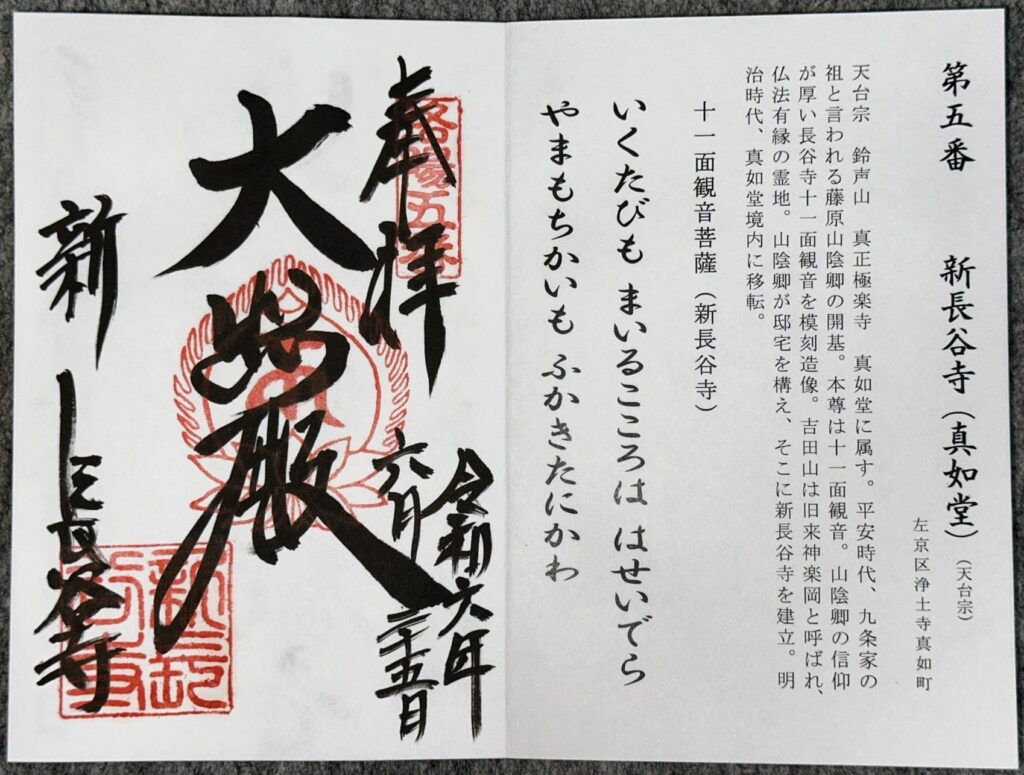 第五番 新長谷寺（真如堂）（天台宗）
左京区浄土寺真如町
天台宗 鈴声山 真正極楽寺 真如堂に属す。平安時代、九条家の
祖と言われる藤原山陰卿の開基。本尊は十一面観音。山陰卿の信仰
が厚い長谷寺十一面観音を模刻造像。吉田山は旧来神楽岡と呼ばれ、
仏法有縁の霊地。山陰卿が邸宅を構え、そこに新長谷寺を建立。明
治時代、真如堂境内に移転。
十一面観音菩薩（新長谷寺）
いくたびも まいるこころは はせいでら
やまもちかいも ふかきたにかわ
洛陽五番
奉拝
令和六年
六月二十五日
大悲殿
新長谷寺